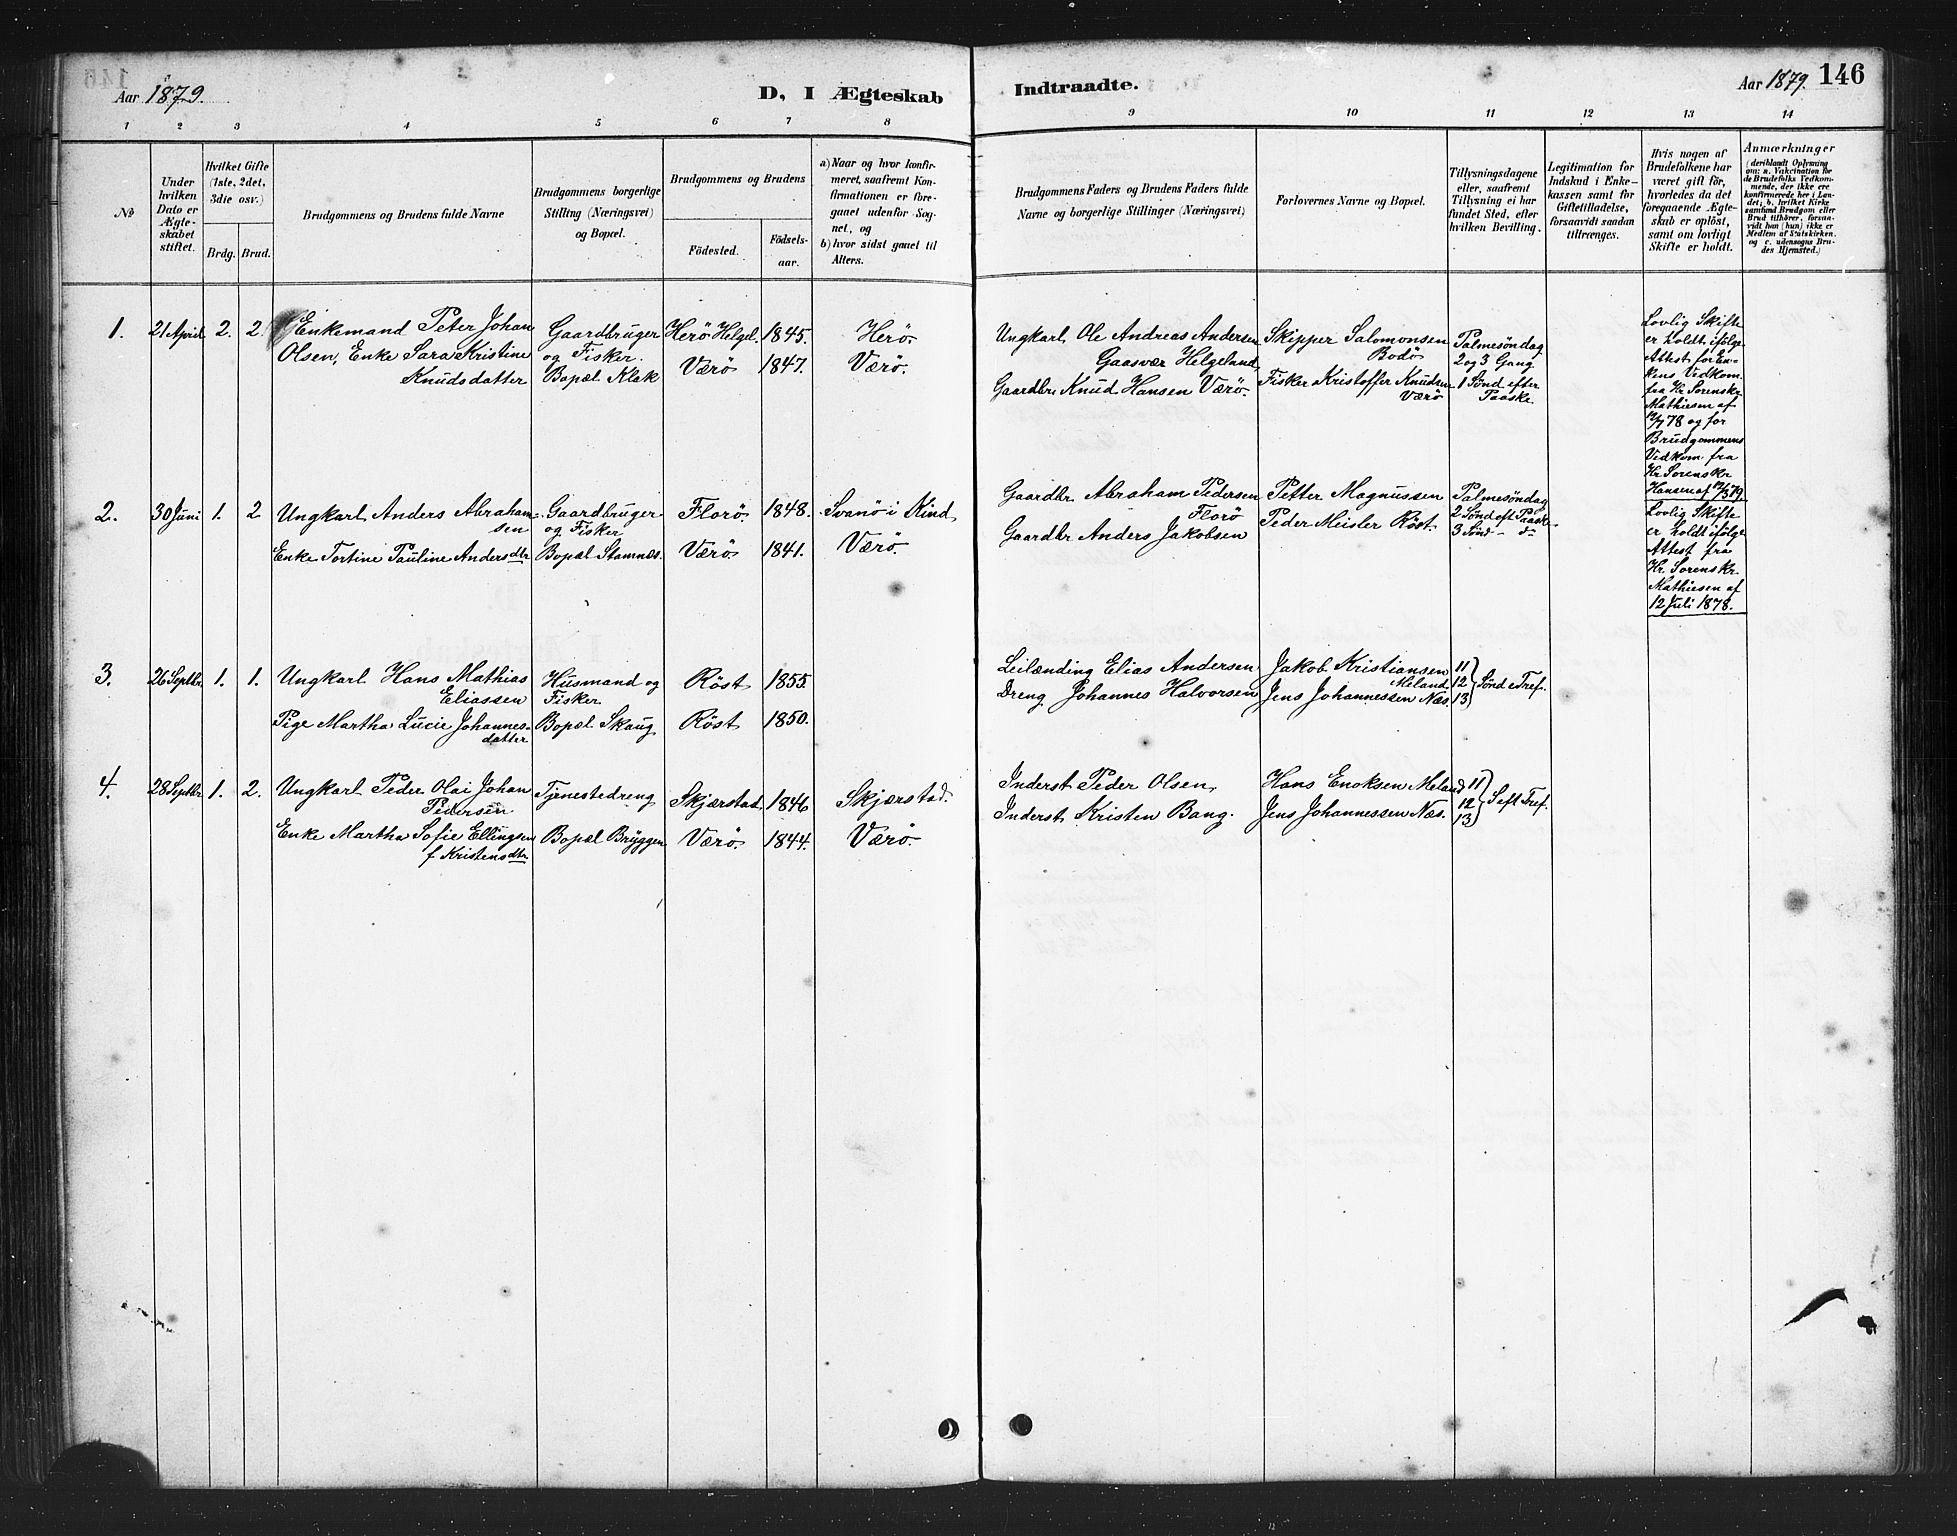 Aar 1879.
D, I Ægteskab
Indtraadte.
Aar 1879. 146
1 2 3 4 5 6 7 8 9 10 11 12 13 14
No
Under
hvilken
Dato er
Ægte-
skabet
stiftet.
Hvilket Gifte
(1ste, 2det,
3die osv.)
Brdg. Brud.
Brudgommens og Brudens fulde Navne
Brudgommens borgerlige
Stilling (Næringsvei)
og Bopæl.
Brudgommens og Brudens
Födested.
Födsels-
aar.
a) Naar og hvor konfir-
meret, saafremt Kon-
firmationen er fore-
gaaet udenfor Sog-
net, og
b) hvor sidst gaaet til
Alters.
Brudgommens Faders og Brudens Faders fulde
Navne og borgerlige Stillinger (Næringsvei)
Forlovernes Navne og Bopæl.
Tillysningsdagene
eller, saafremt
Tillysning ei har
fundet Sted, efter
hvilken Bevilling.
Legitimation for
Indskud i Enke-
kassen samt for
Giftetilladelse,
forsaavidt saadan
tiltrænges.
Hvis nogen af
Brudefolkene har
været gift för,
hvorledes da det
foregaaende Ægte-
skab er oplöst,
samt om lovligt
Skifte er holdt.
Anmærkninger
(deriblandt Oplysning
om: a. Vakcination for
de Brudefolks Vedkom-
mende, der ikke ere
konfirmerede her i Lan-
det; b. hvilket Kirke-
samfund Brudgom eller
Brud tilhører, forsaa-
vidt han (hun) ikke er
Medlem af Statskirken,
og c. udensogns Bru-
des Hjemsted.)
1. 21 April 2. 2.
Enkemand Peter Johan
Olsen, Enke Sara Kristine
Knudsdatter
Gaardbruger
og Fisker.
Bopæl Klak
Herö Helgel. 1845. Herö
Værö 1847. Værö.
Ungkarl Ole Andreas Andersen
Gaasvær Helgeland
Gaardbr. Knud Hansen Værö.
Skipper Salomonsen
Bodö
Fisker Kristoffer Knudsen
Værö
Palmesöndag
2 og 3 Gang
1 Sönd efter
Paaske.
Lovlig Skifte
er holdt ifölge
Attest for En-
kens Vidkom.
fra Hr Sorenskr
Mathiesen af
12/7 78 og for
Brudgommens
Vidkom. fra
Hr Sorenskr.
Hansen af 19/3 79
2. 30 Juni 1. 2
Ungkarl Anders Abraham-
sen
Enke Tortine Pauline Andersdtr
Gaardbruger
og Fisker
Bopæl Stamnæs.
Florö 1848. Svanö i Kind
Værö 1841. Værö.
Gaardbr Abraham Pedersen
Florö
Gaardbr Anders Jakobsen
Petter Magnussen
Peder Meisler Röst.
Palmesöndag
2 Sönd eft Paaske
3 Sönd - d-
Lovlig Skifte
er holdt ifölge
Attest fra
Hr. Sorenskr.
Mathiesen af
12 Juli 1878.
3. 26 Septbr. 1. 1.
Ungkarl Hans Mathias
Eliassen
Pige Martha Lucie Johannes-
datter
Husmand og
Fisker
Bopæl Skaug
Röst 1855.
Röst 1850.
Leilænding Elias Andersen
Dreng Johannes Halvorsen
Jakob Kristiansen
Meland
Jens Johannessen Næs.
11
12 Sönd e Tref.
13
4. 28 Septbr. 1. 2.
Ungkarl Peder Olai Johan
Pedersen
Enke Martha Sofie Ellingsen
f Kristensdtr
Tjenestedreng
Bopæl Bryggen
Skjærstad 1846 Skjærstad.
Værö. 1844. Værö.
Inderst Peder Olsen,
Inderst Kristen Bang.
Hans Enoksen Meland
Jens Johannessen Næs.
11
12 S eft Tref.
13